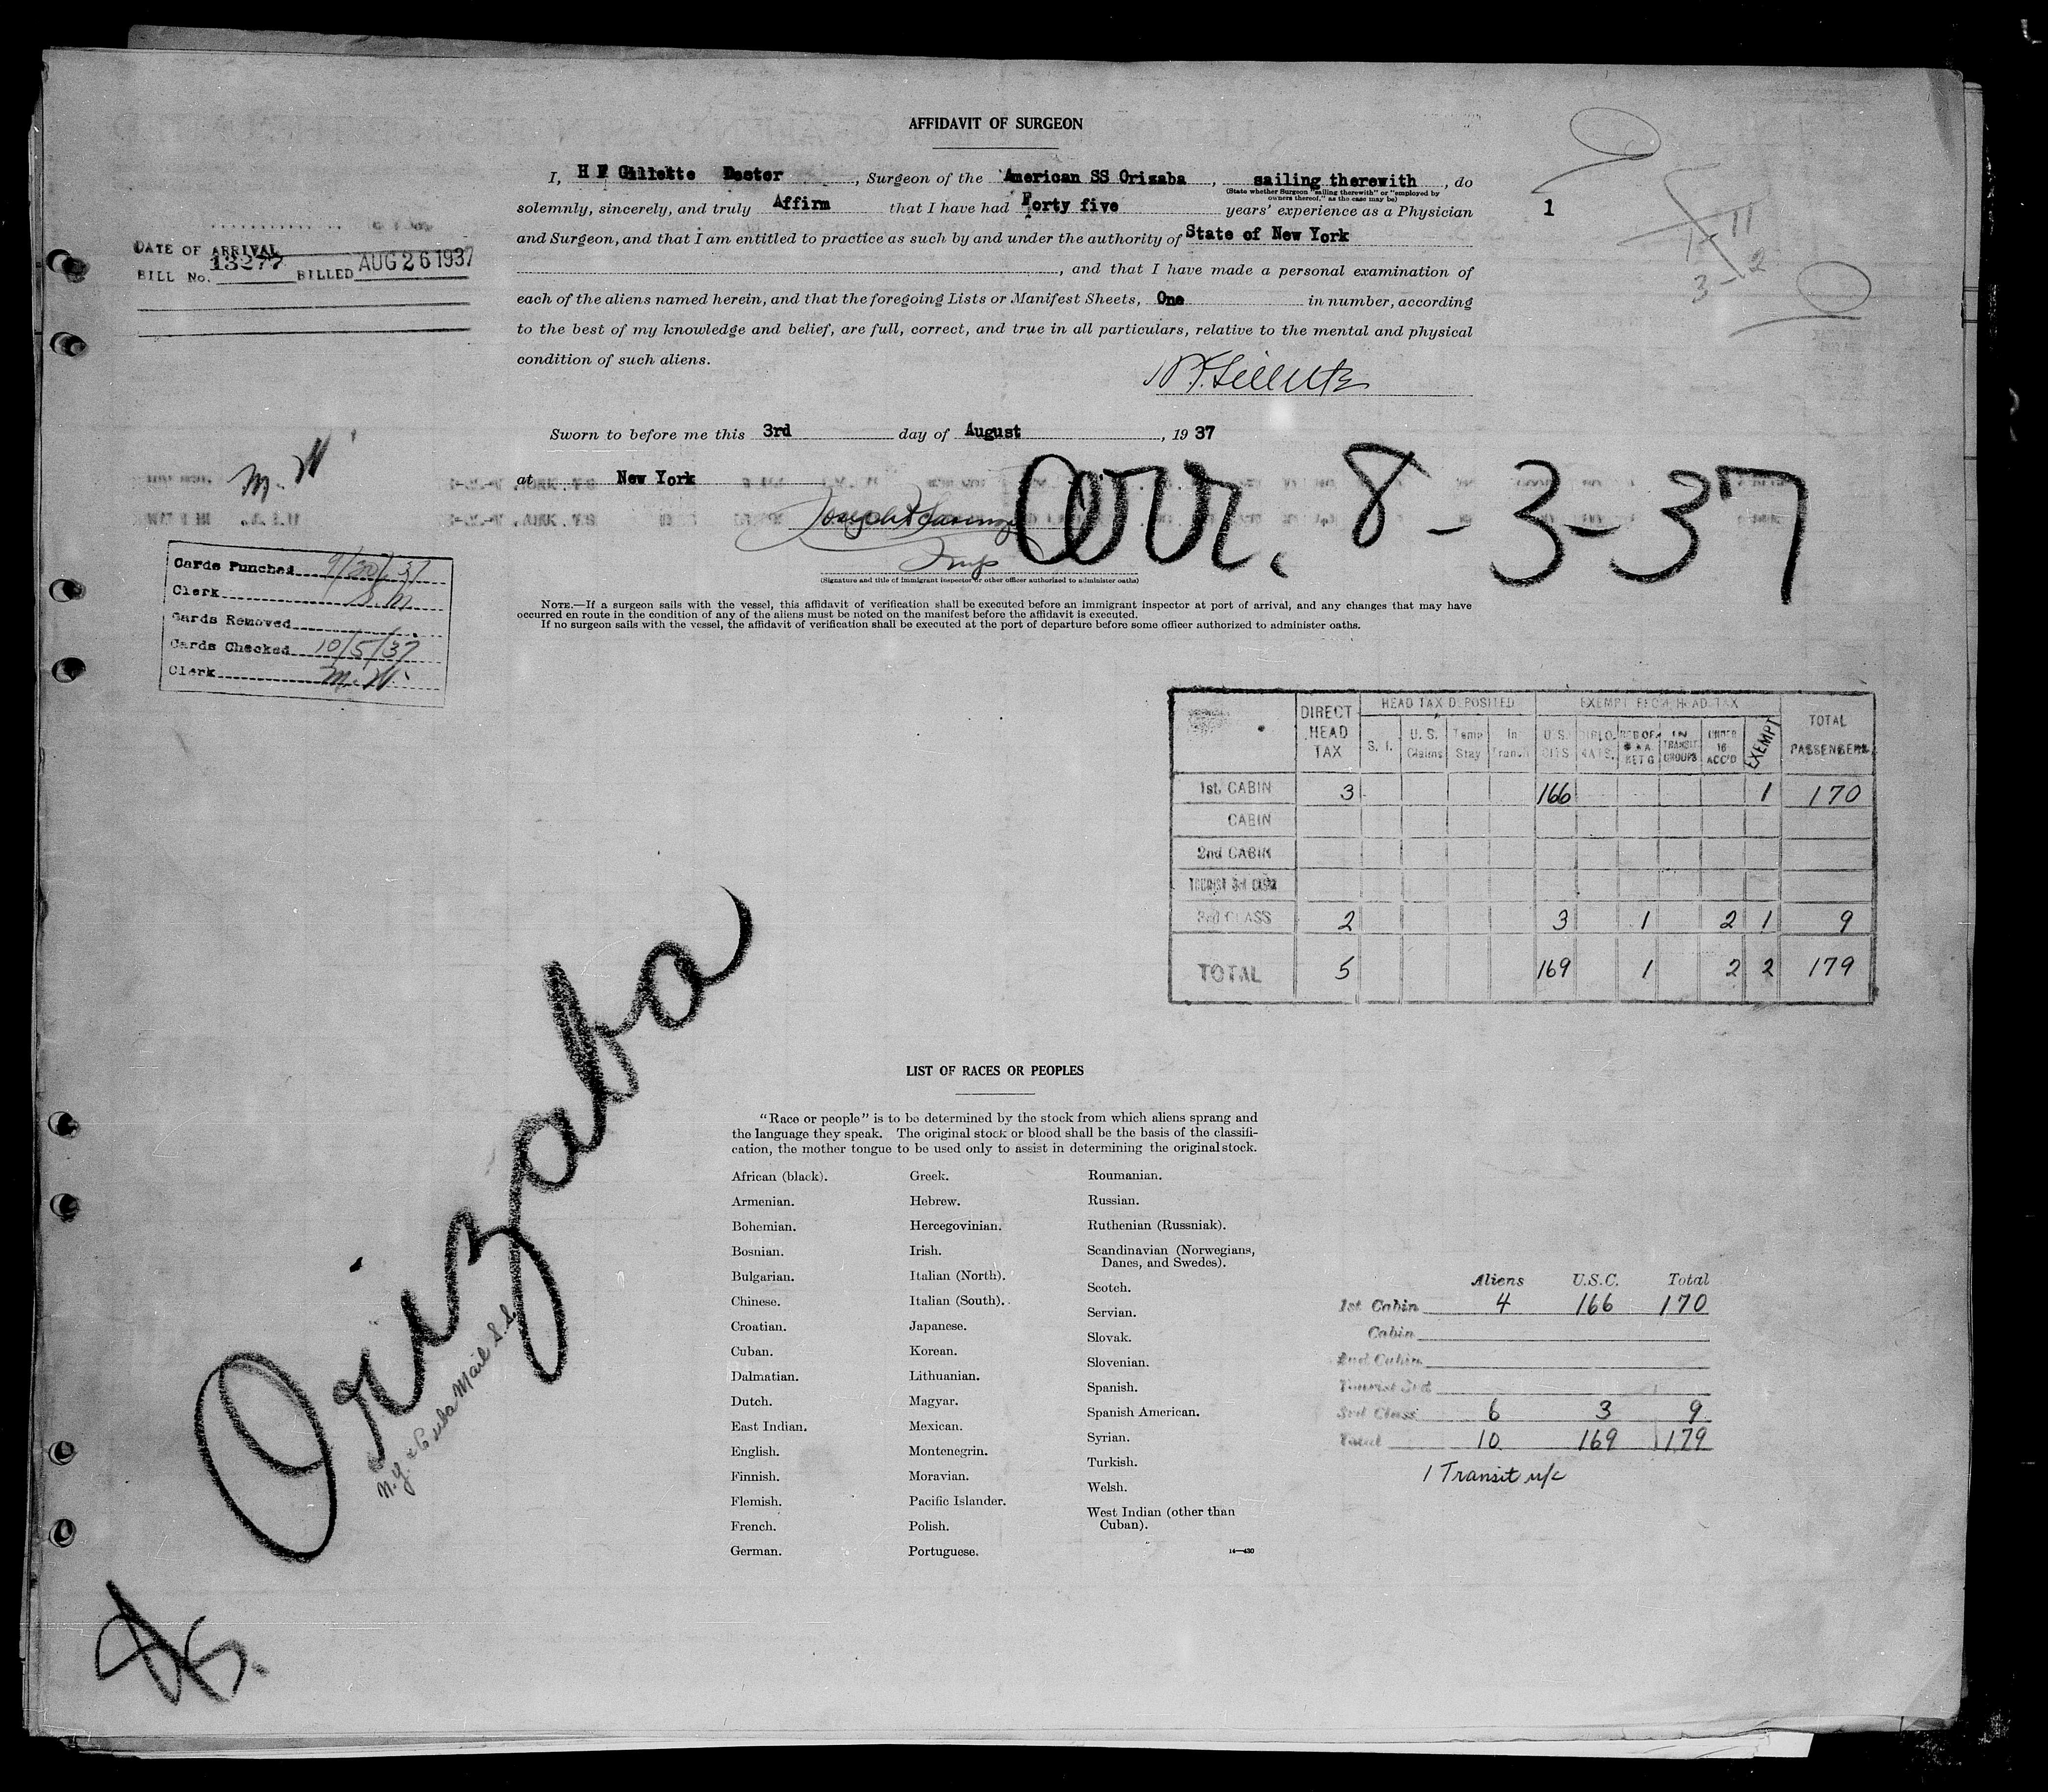 AFFIDAVIT OF SURGEON
I, H F Gillette Doctor, Surgeon of the American SS Orizaba, sailing therewith, do
(State whether Surgeon "sailing therewith" or "employed by
owners thereof," as the case may be)
solemnly, sincerely, and truly Affirm that I have had Forty five years' experience as a Physician
1
and Surgeon, and that I am entitled to practice as such by and under the authority of State of New York
, and that I have made a personal examination of
each of the aliens named herein, and that the foregoing Lists or Manifest Sheets, One in number, according
to the best of my knowledge and belief, are full, correct, and true in all particulars, relative to the mental and physical
condition of such aliens.
H F Gillette
11
3-2
DATE OF ARRIVAL
BILL No. 13277 BILLED AUG 26 1937
Sworn to before me this 3rd day of August, 1937
at New York
M. W.
Arr. 8-3-37
Insp
(Signature and title of immigrant inspector or other officer authorized to administer oaths)
NOTE.—If a surgeon sails with the vessel, this affidavit of verification shall be executed before an immigrant inspector at port of arrival, and any changes that may have
occurred en route in the condition of any of the aliens must be noted on the manifest before the affidavit is executed.
If no surgeon sails with the vessel, the affidavit of verification shall be executed at the port of departure before some officer authorized to administer oaths.
Cards Punched 9/30/37
Clerk S.M.
Cards Removed
Cards Checked 10/5/37
Clerk M.W.
DIRECT HEAD TAX HEAD TAX DEPOSITED EXEMPT FROM HEAD TAX TOTAL PASSENGERS
S. I. U. S. Claims Temp Stay In Transit U.S. CITS DIPLO. NATS. IN TRANSIT GROUPS UNDER 16 ACC'D EXEMPT
1st. CABIN 3 166 1 170
CABIN
2nd CABIN
TOURIST 3rd CABIN
3rd CLASS 2 3 1 2 1 9
TOTAL 5 169 1 2 2 179
Orizaba
N.Y. & Cuba Mail S.S.
LIST OF RACES OR PEOPLES
"Race or people" is to be determined by the stock from which aliens sprang and
the language they speak. The original stock or blood shall be the basis of the classifi-
cation, the mother tongue to be used only to assist in determining the original stock.
African (black).
Armenian.
Bohemian.
Bosnian.
Bulgarian.
Chinese.
Croatian.
Cuban.
Dalmatian.
Dutch.
East Indian.
English.
Finnish.
Flemish.
French.
German.
Greek.
Hebrew.
Hercegovinian.
Irish.
Italian (North).
Italian (South).
Japanese.
Korean.
Lithuanian.
Magyar.
Mexican.
Montenegrin.
Moravian.
Pacific Islander.
Polish.
Portuguese.
Roumanian.
Russian.
Ruthenian (Russniak).
Scandinavian (Norwegians,
Danes, and Swedes).
Scotch.
Servian.
Slovak.
Slovenian.
Spanish.
Spanish American.
Syrian.
Turkish.
Welsh.
West Indian (other than
Cuban).
14—430
Aliens U.S.C. Total
1st Cabin 4 166 170
Cabin
2nd Cabin
Tourist 3rd
3rd Class 6 3 9
Total 10 169 179
1 Transit u/c